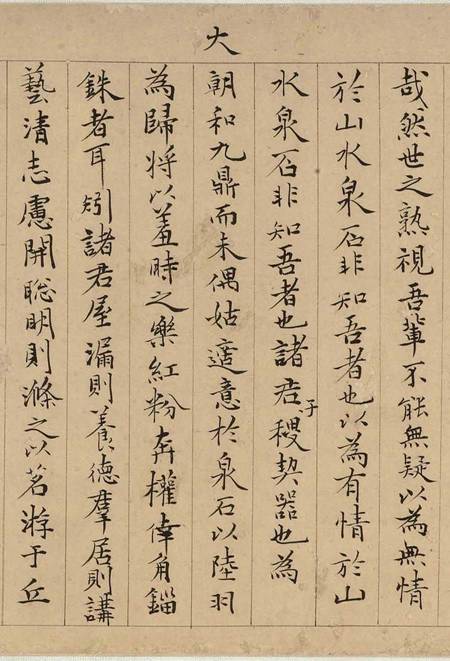 哉然世之熟視吾輩不能無疑以為無情
於山水泉石非知吾者也以為有情於山
水泉石非知吾者也諸君子稷契器也為
大朝和九鼎而未偶姑適意於泉石以陸羽
為歸将以羞時之樂紅粉奔權倖角錙
銖者耳矧諸君屋漏則養德羣居則講
藝清志慮開聡明則滌之以茗游于丘